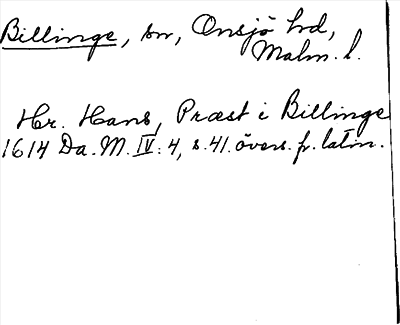 Billinge, sn, Onsjö hd,
Malm. l.
Hr. Hans, Præst i Billinge
1614 Da. M. IV: 4, s. 41. övers. fr. latin.